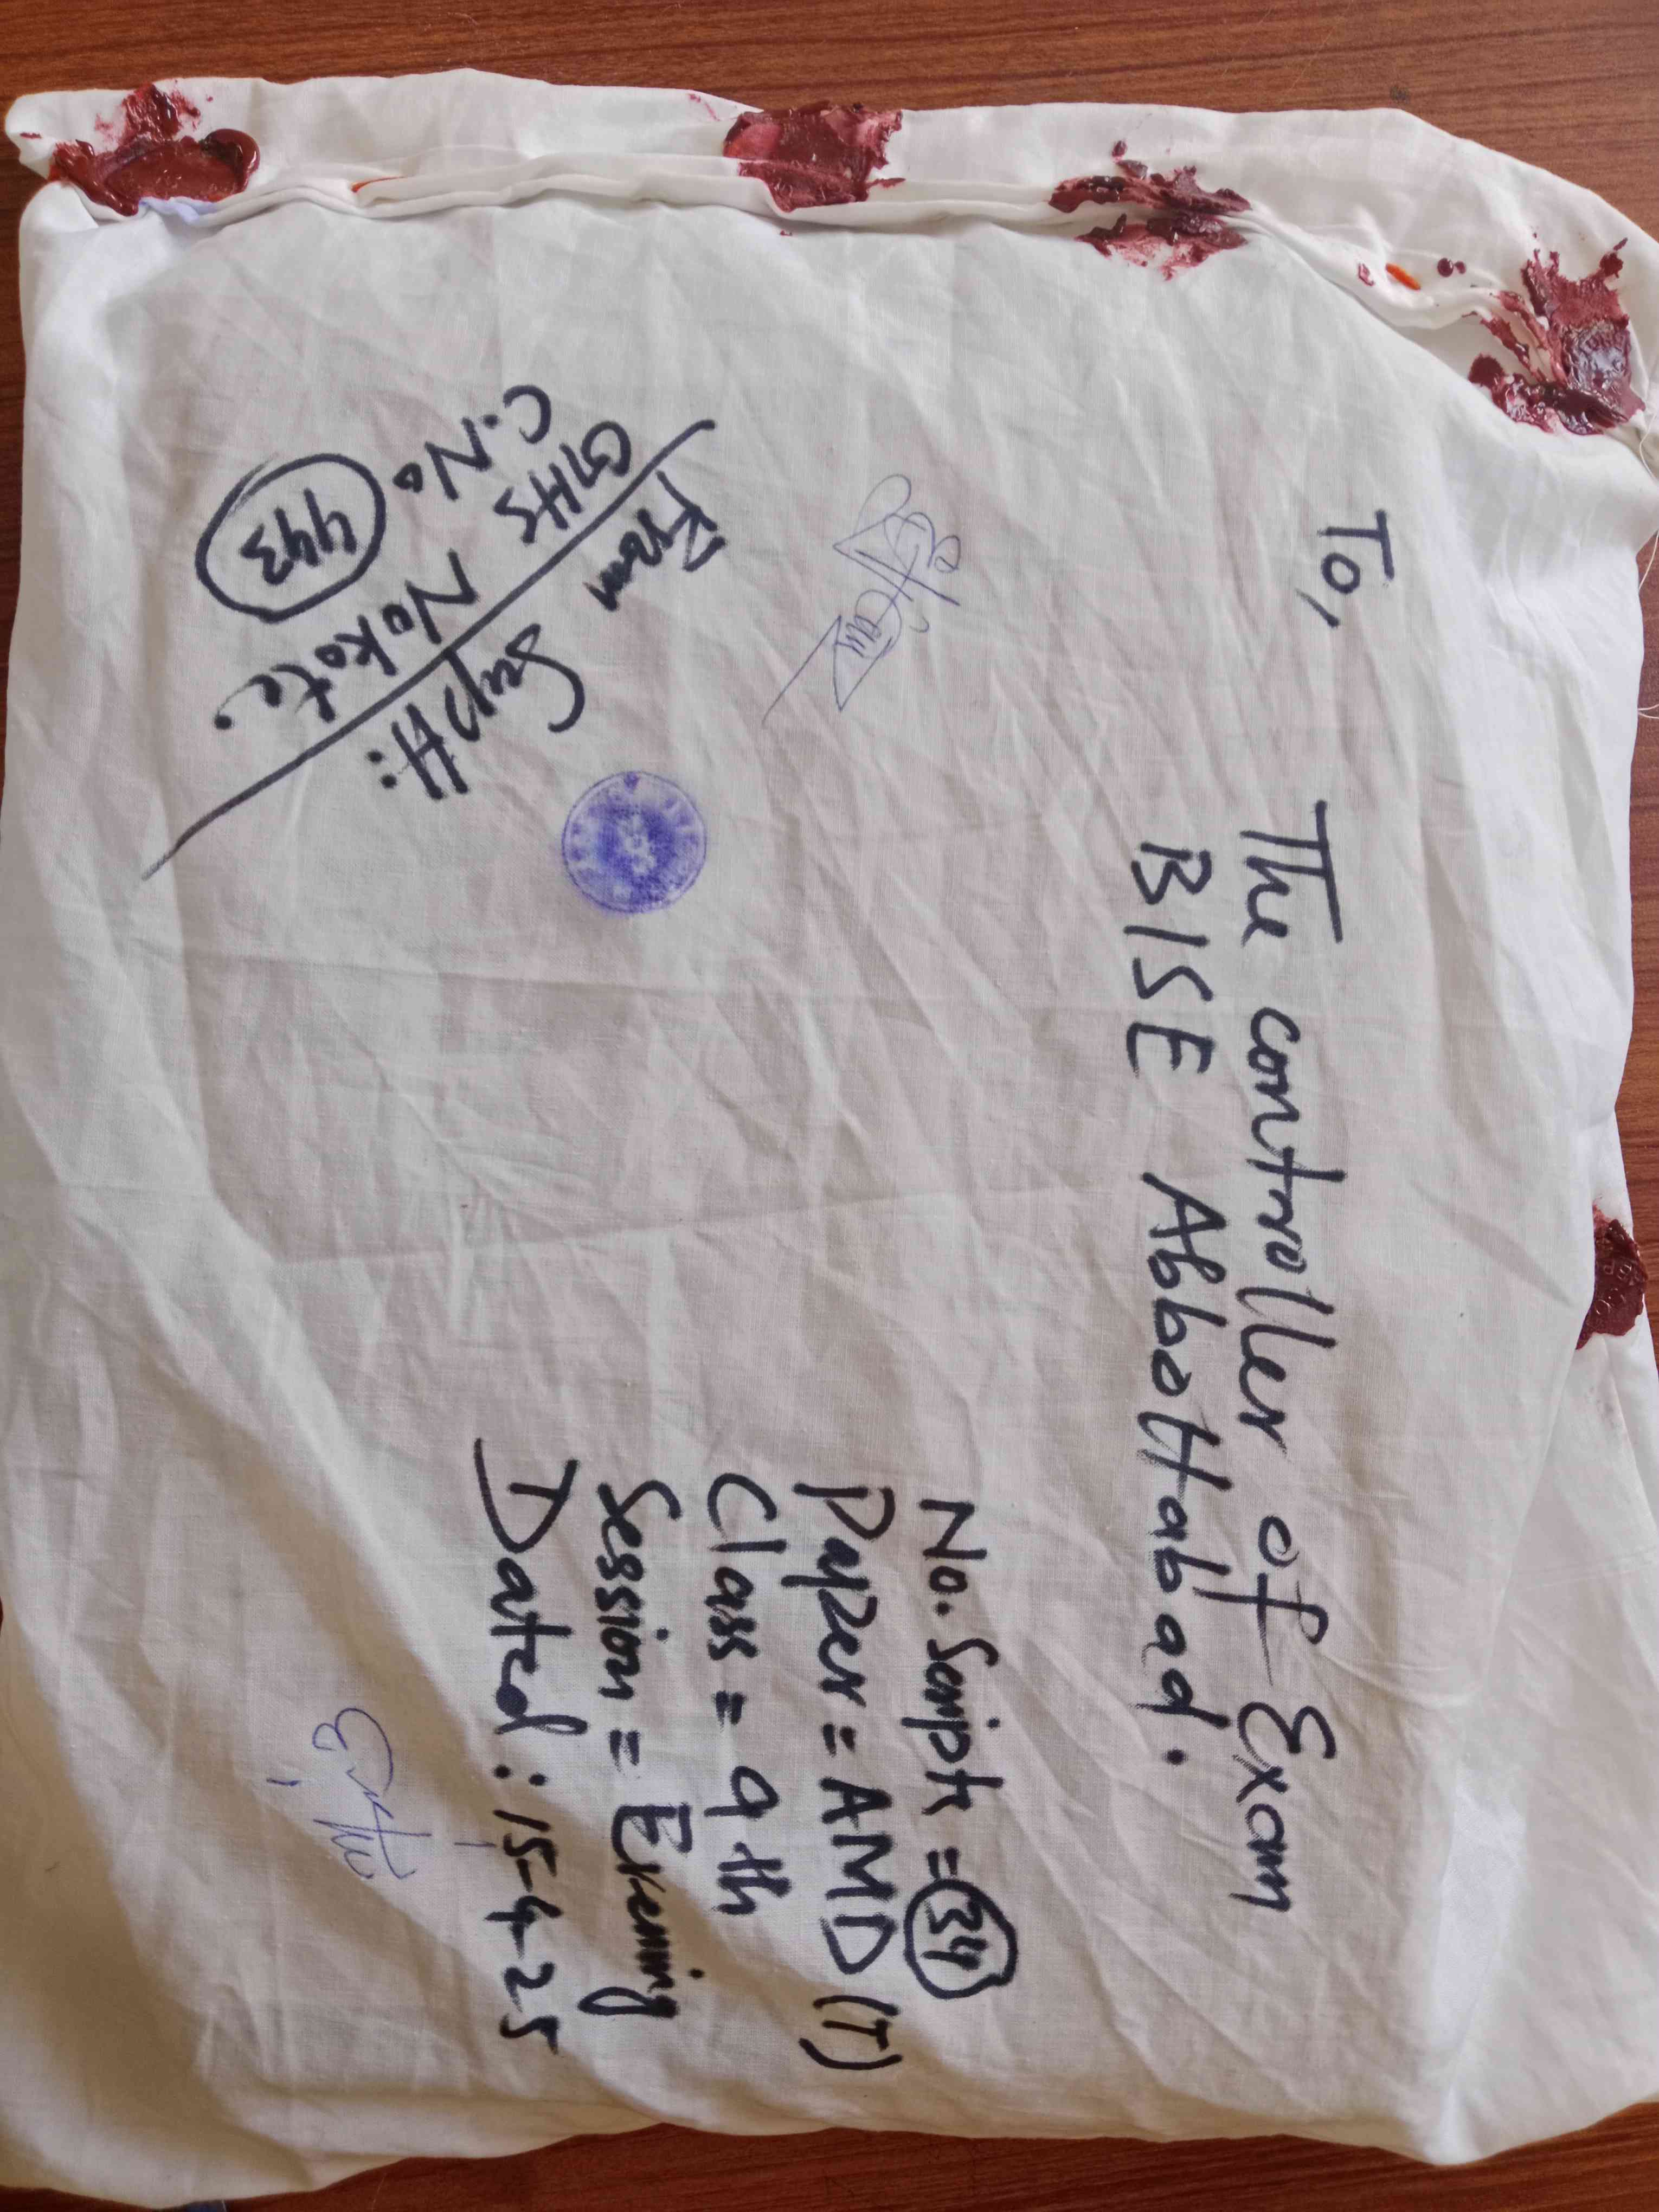 To,
The controller of Exam
BISE Abbottabad.
No. Script = 34
Paper = AMD (T)
Class = 9th
Session = Evening
Dated : 15-4-25
From Suptt:
GHS Nokote.
C.No 443